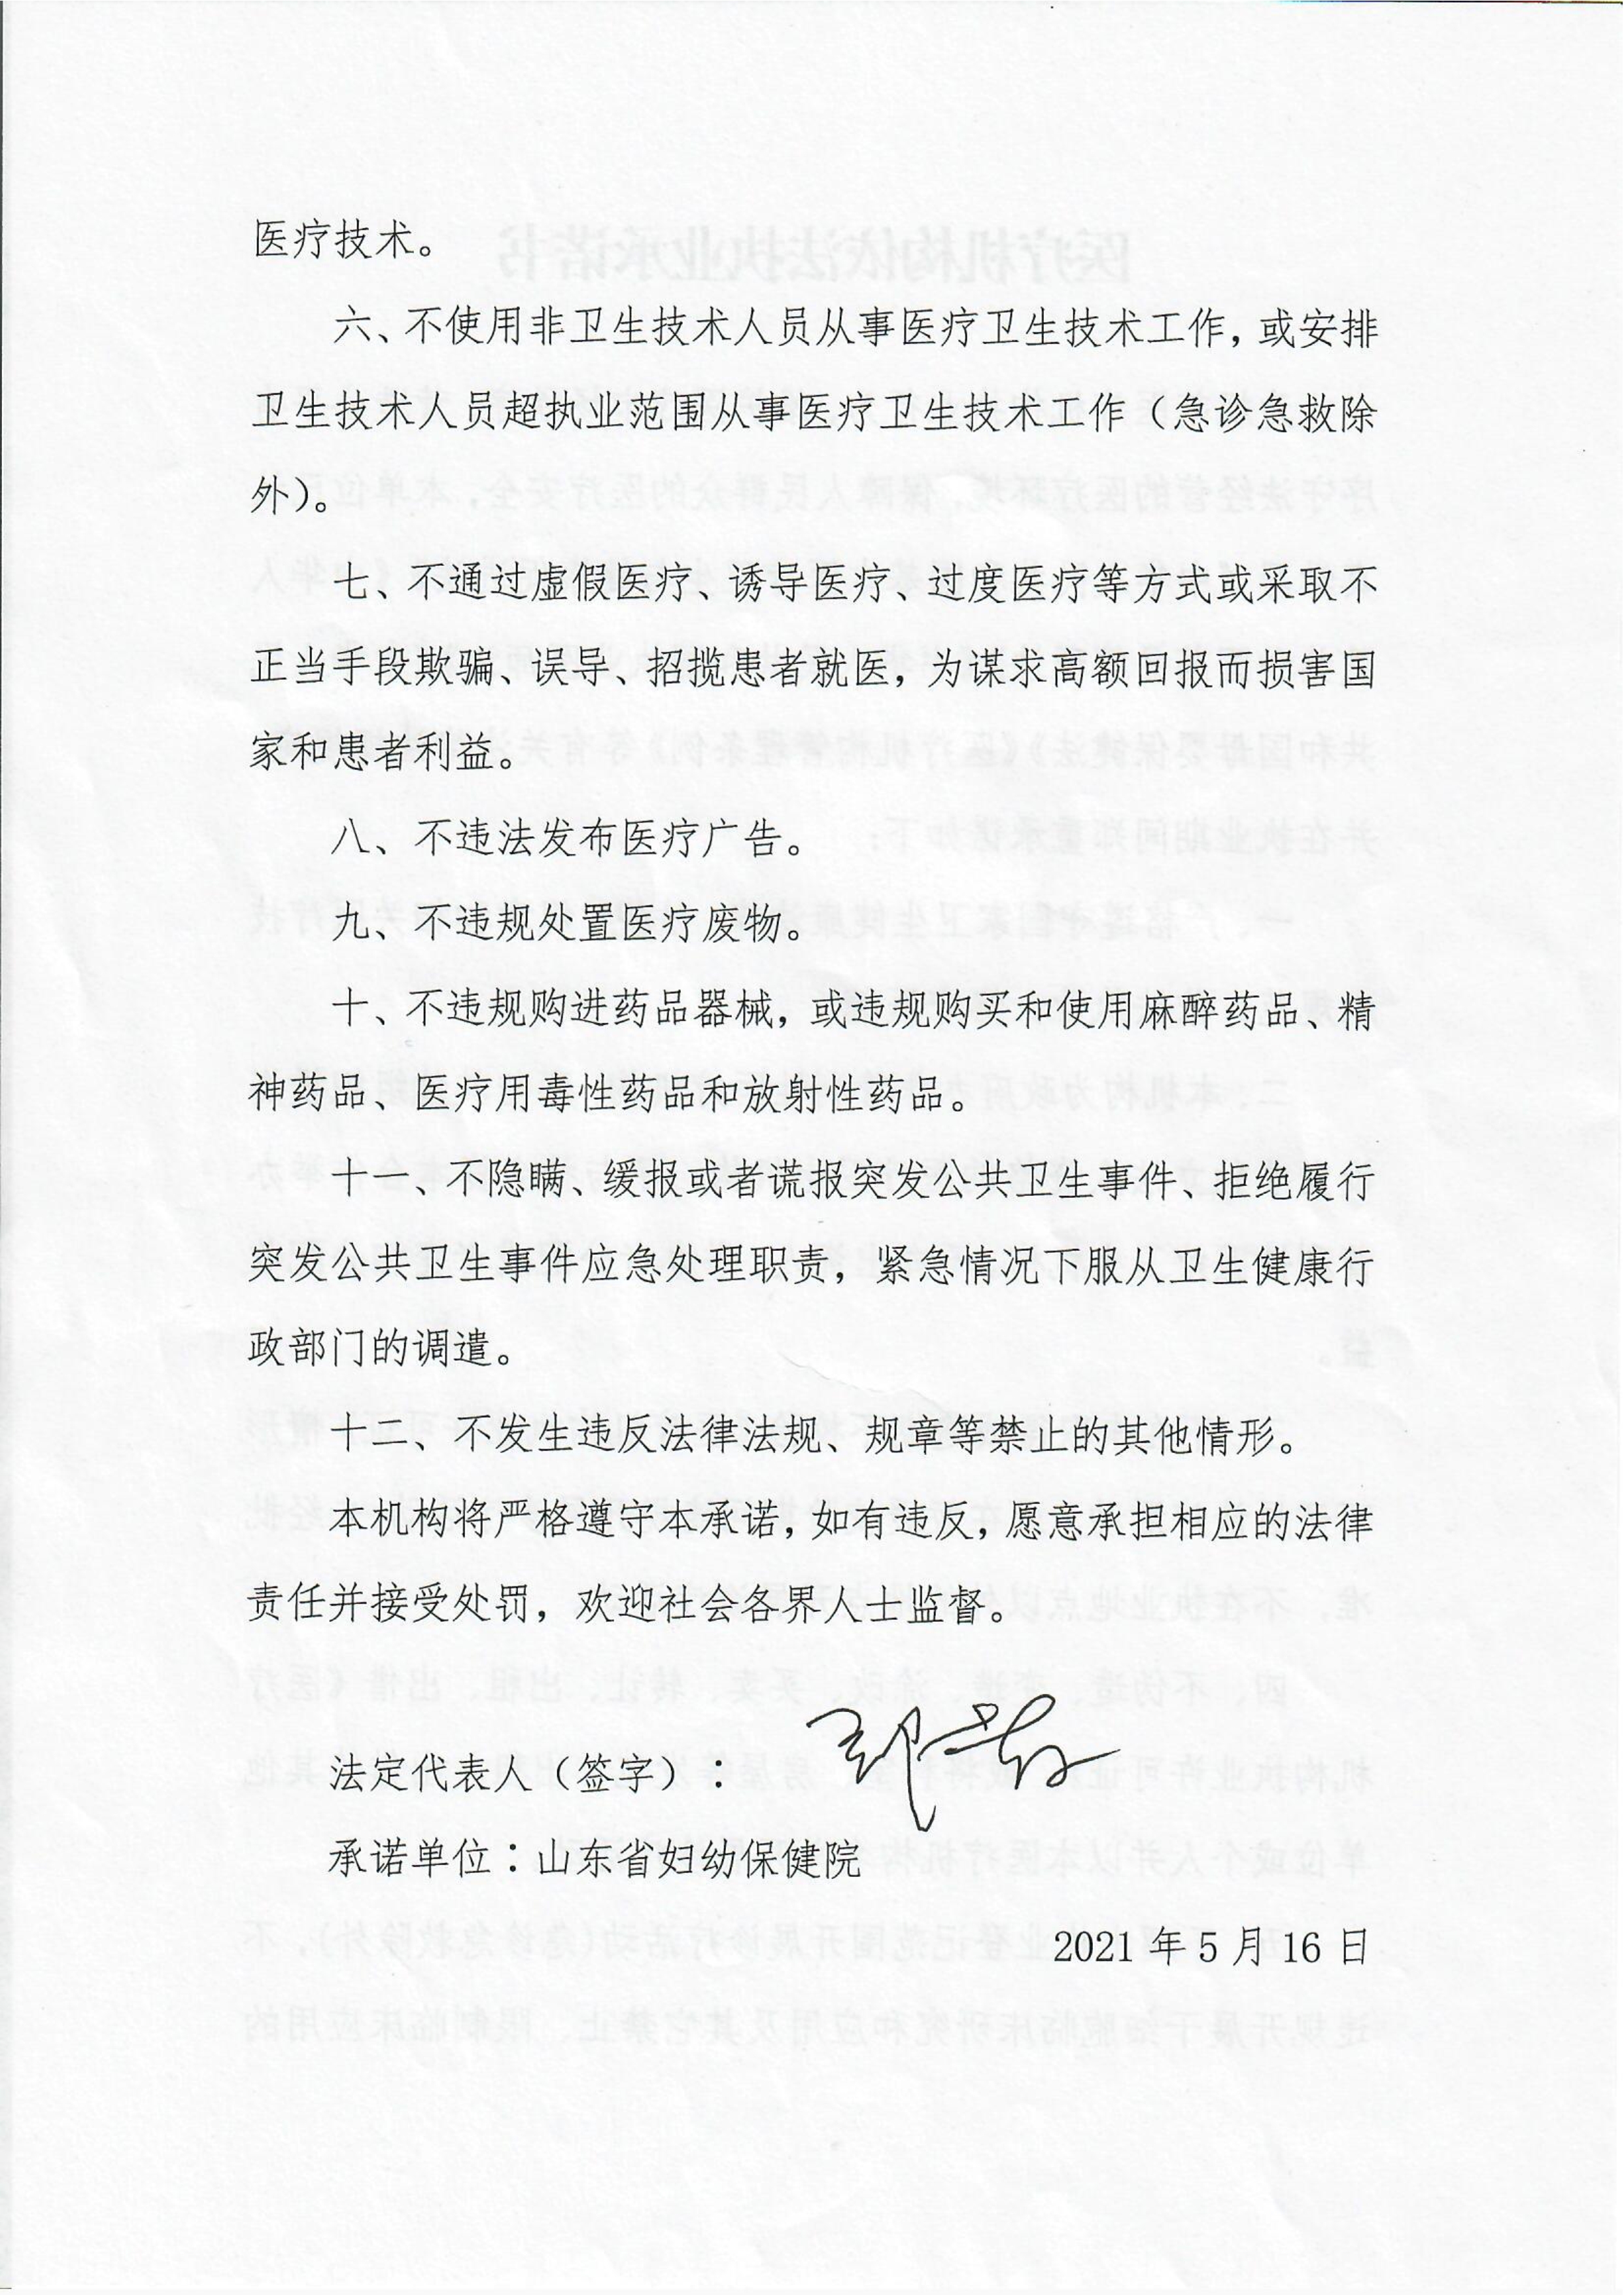 医疗技术。
六、不使用非卫生技术人员从事医疗卫生技术工作，或安排
卫生技术人员超执业范围从事医疗卫生技术工作（急诊急救除
外）。
七、不通过虚假医疗、诱导医疗、过度医疗等方式或采取不
正当手段欺骗、误导、招揽患者就医，为谋求高额回报而损害国
家和患者利益。
八、不违法发布医疗广告。
九、不违规处置医疗废物。
十、不违规购进药品器械，或违规购买和使用麻醉药品、精
神药品、医疗用毒性药品和放射性药品。
十一、不隐瞒、缓报或者谎报突发公共卫生事件、拒绝履行
突发公共卫生事件应急处理职责，紧急情况下服从卫生健康行
政部门的调遣。
十二、不发生违反法律法规、规章等禁止的其他情形。
本机构将严格遵守本承诺，如有违反，愿意承担相应的法律
责任并接受处罚，欢迎社会各界人士监督。
法定代表人（签字）：
承诺单位：山东省妇幼保健院
2021 年 5 月 16 日